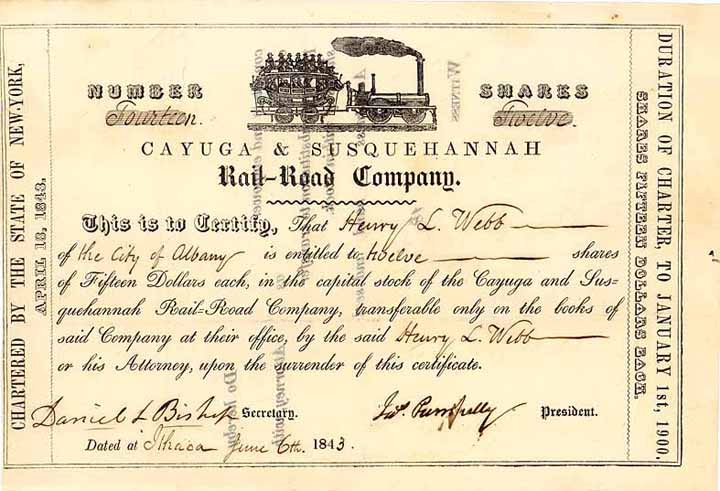 NUMBER
Fourteen.
SHARES
Twelve.
CAYUGA & SUSQUEHANNAH
Rail-Road Company.
This is to Certify, That Henry L. Webb
of the City of Albany is entitled to twelve shares
of Fifteen Dollars each, in the capital stock of the Cayuga and Sus-
quehannah Rail-Road Company, transferable only on the books of
said Company at their office, by the said Henry L. Webb
or his Attorney, upon the surrender of this certificate.
Daniel L Bishop Secretary.
Jas. Pumpelly President.
Dated at Ithaca June 6th. 1843.
CHARTERED BY THE STATE OF NEW-YORK,
APRIL 18, 1843.
DURATION OF CHARTER, TO JANUARY 1st, 1900.
SHARES FIFTEEN DOLLARS EACH.
WITNESS
Attorney
Do hereby